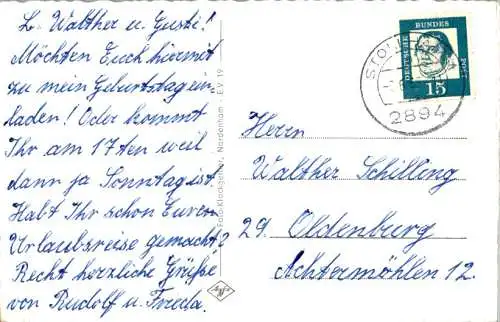 L. Walther u. Gusti!
Möchten Euch hiermit
zu mein Geburtstag ein=
laden! Oder kommt
Ihr am 17ten weil
dann ja Sonntag ist.
Habt Ihr schon Euren
Urlaubsreise gemacht?
Recht herzliche Grüße
von Rudolf u. Freda.
Foto-Klockgether, Nordenham · EV 19
Agfa
DEUTSCHE
BUNDES
POST
15
STOLL
2894
Herrn
Walther Schilling
29. Oldenburg
Achtermöhlen 12.